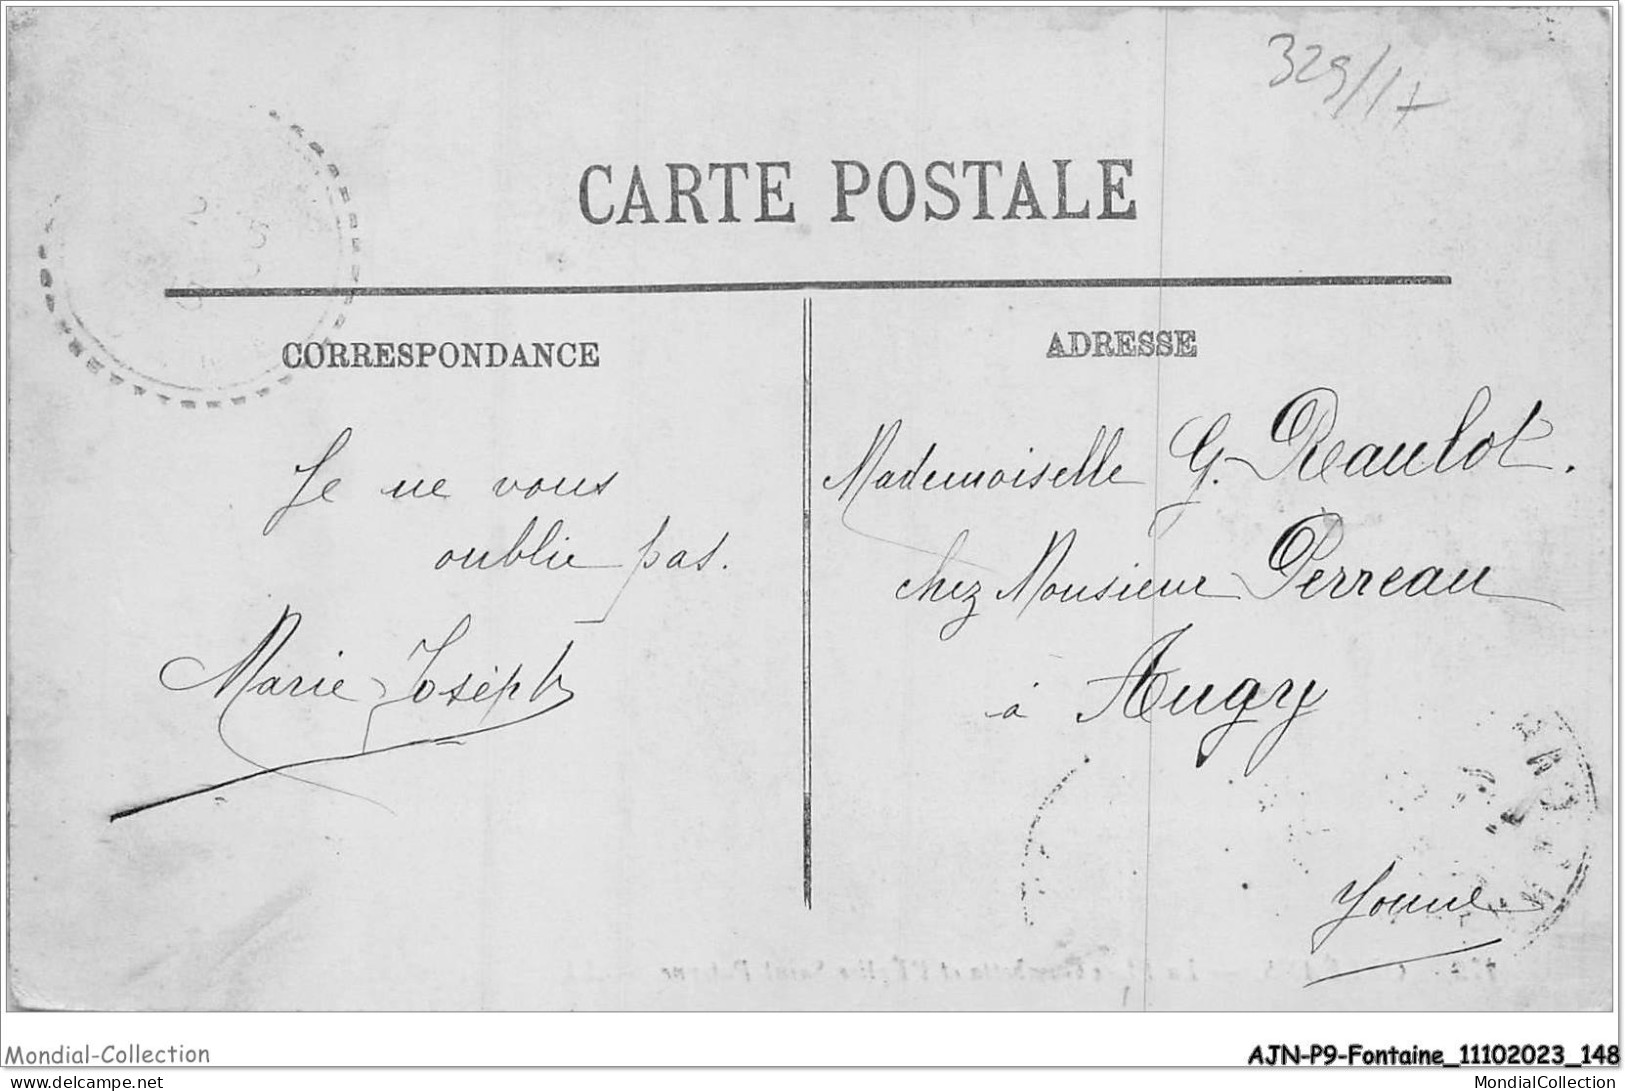 329/17
CARTE POSTALE
CORRESPONDANCE
ADRESSE
Je ne vous
oublie pas.
Marie Joseph
Mademoiselle G. Reaulot.
chez Monsieur Perreau
à Augy
Yonne
Mondial-Collection
AJN-P9-Fontaine_11102023_148
www.delcampe.net
MondialCollection